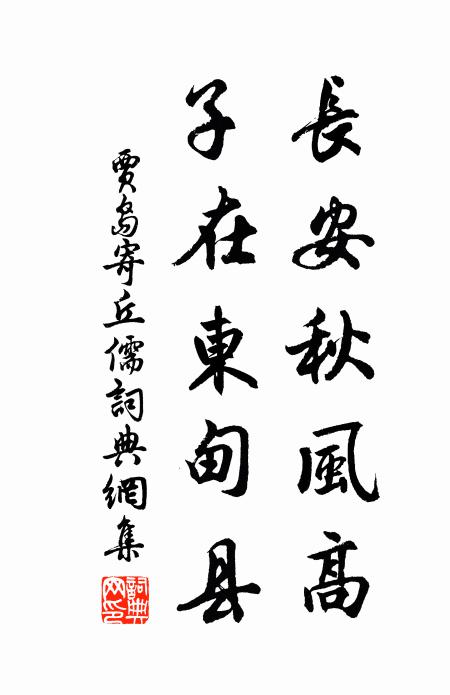 長安秋風高
子在東甸县
賈島寄丘儒詞典網集
詞典网印